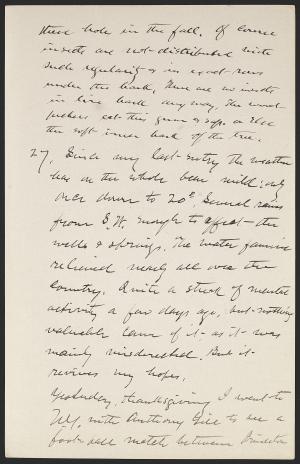 these hole in the fall. Of course
insects are not distributed with
such regularity or in exact rows
under the bark, there are no insects
in live bark any way, the wood-
peckers eat this gum or sap or else
the soft inner bark of the tree.
27, Since my last entry the weather
has on the whole been mild; only
once down to 20°. Several rains
from S.W. enough to affect the
wells & springs. The water famine
relieved nearly all over the
country. Quite a streak of mental
activity a few days ago, but nothing
valuable came of it as it was
mainly misdirected. But it
revives my hopes.
Yesterday, thanksgiving I went to
N.Y. with Anthony Gill to see a
foot-ball match between Princeton